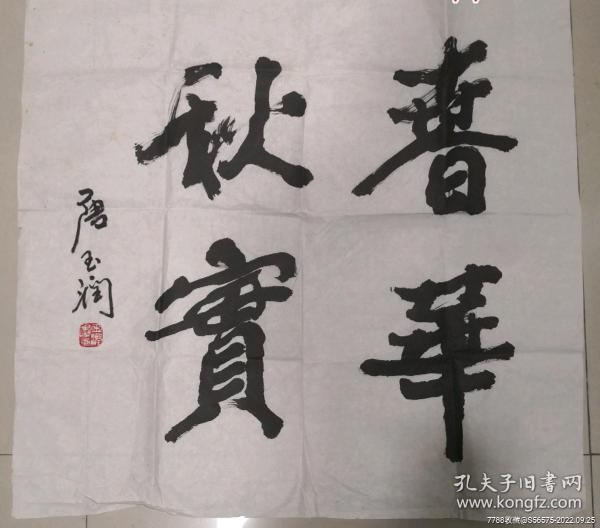 春華
秋實
唐玉潤
孔夫子旧书网
www.kongfz.com
7788收藏@S56575-2022.09.25